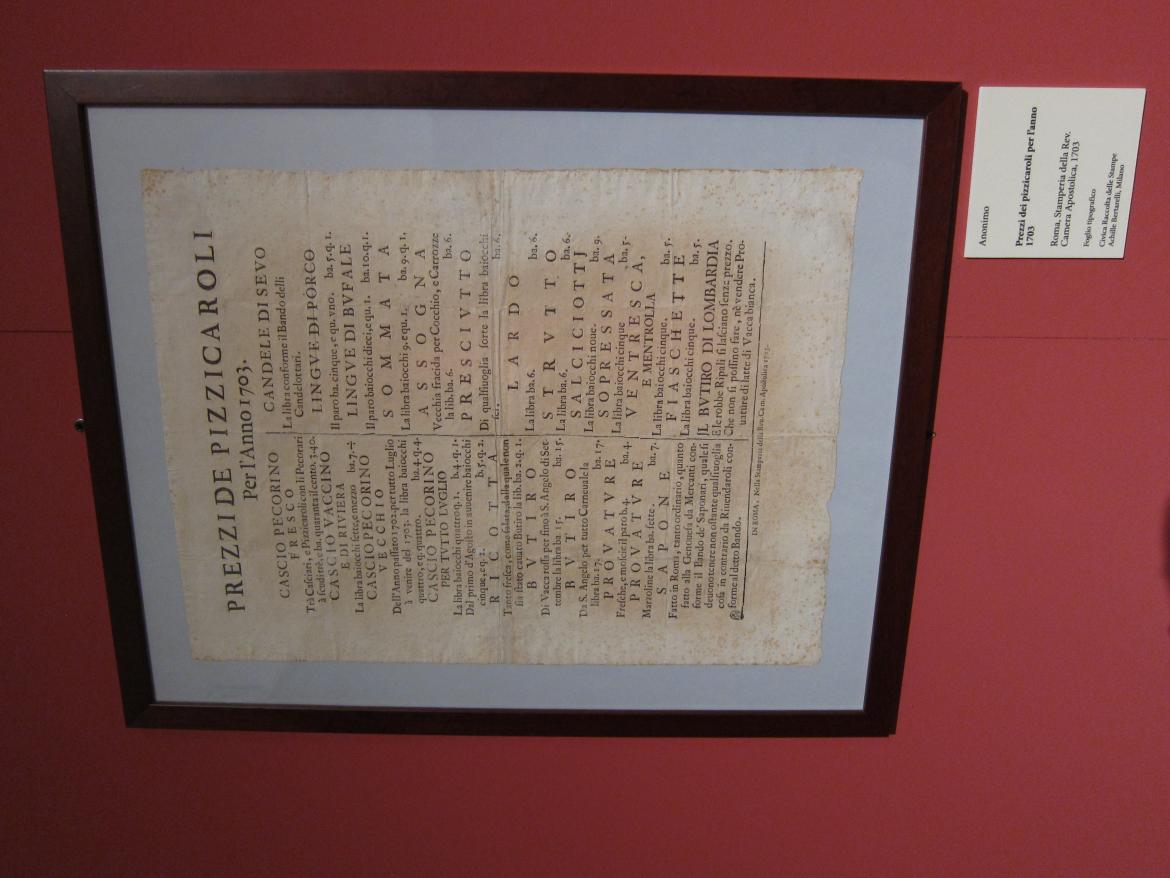 PREZZI DE PIZZICAROLI
Per l'Anno 1703.
CASCIO PECORINO
FRESCO
Trà Casciari, e Pizzicaroli con li Pecorari
à scudi trè, e ba. quaranta il cento. 3.40.
CASCIO VACCINO
E DI RIVIERA
La libra baiocchi sette, e mezzo ba. 7.
CASCIO PECORINO
VECCHIO
Dell'Anno passato 1702. per tutto Luglio
à venire del 1703. la libra baiocchi
quattro, e q. quattro. ba. 4. q. 4.
CASCIO PECORINO
PER TVTTO LVGLIO
La libra baiocchi quattro q. 1. ba. 4. q. 1.
Dal primo d'Agosto in auuenire baiocchi
cinque, e q. 2. ba. 5. q. 2.
RICOTTA
Tanto fresca, come salata, dalla quale non
sia stato cauato Butiro la lib. ba. 2. q. 1.
BVTIRO
Di Vacca rossa per fino à S. Angelo di Set-
tembre la libra ba. 15. ba. 15.
BVTIRO
Da S. Angelo per tutto Carneuale la
libra ba. 17. ba. 17.
PROVATVRE
Fresche, e moscie il paro b. 4. ba. 4.
PROVATVRE
Marzoline la libra ba. sette. ba. 7.
SAPONE
Fatto in Roma, tanto ordinario, quanto
fatto alla Genouesa da Mercanti con-
forme il Bando de' Saponari, quale si
deuono tenere non ostante qualsiuoglia
cosa in contrario da Riuendaroli con-
forme al detto Bando.
CANDELE DI SEVO
La libra conforme il Bando delli
Candelottari.
LINGVE DI PORCO
Il paro ba. cinque, e qu. vno. ba. 5. q. 1.
LINGVE DI BVFALE
Il paro baiocchi dieci, e qu. 1. ba. 10. q. 1.
SOMMATA
La libra baiocchi 9. e qu. 1. ba. 9. q. 1.
ASSOGNA
Vecchia fracida per Cocchio, e Carrozze
la lib. ba. 6. ba. 6.
PRESCIVTTO
Di qualsiuoglia sorte la libra baiocchi
sei. ba. 6.
LARDO
La libra ba. 6. ba. 6.
STRVTTO
La libra ba. 6. ba. 6.
SALCICIOTTI
La libra baiocchi noue. ba. 9.
SOPRESSATA
La libra baiocchi cinque ba. 5.
VENTRESCA,
E MENTROLLA
La libra baiocchi cinque. ba. 5.
FIASCHETTE
La libra baiocchi cinque. ba. 5.
IL BVTIRO DI LOMBARDIA
E le robbe Ripali si lasciano senza prezzo.
Che non si possino fare, nè vendere Pro-
uature di latte di Vacca bianca.
IN ROMA, Nella Stamperia della Reu. Cam. Apostolica 1703.
Anonimo
Prezzi dei pizzicaroli per l'anno
1703
Roma, Stamperia della Rev.
Camera Apostolica, 1703
Foglio tipografico
Civica Raccolta delle Stampe
Achille Bertarelli, Milano